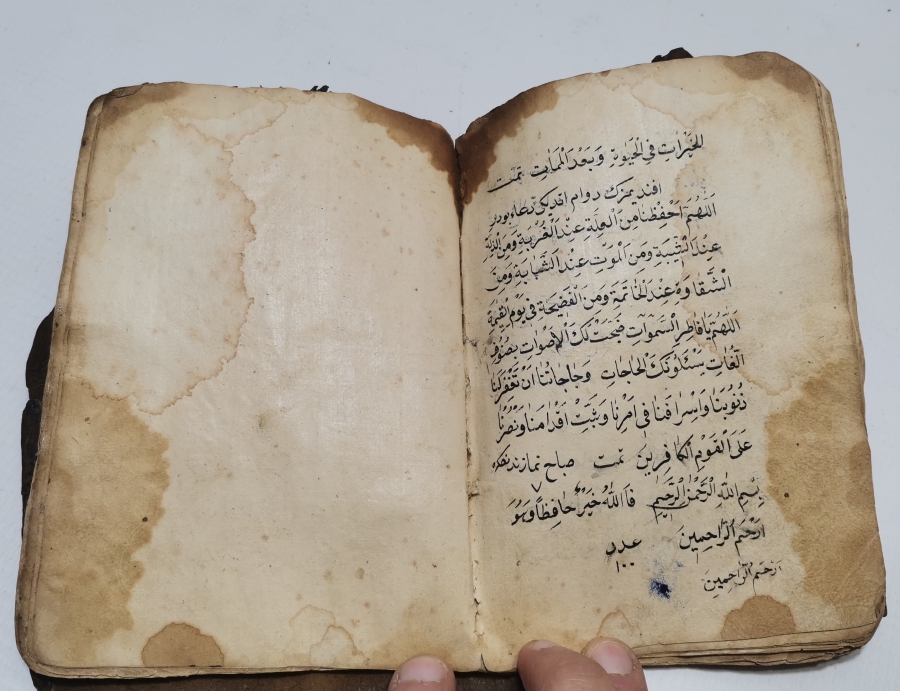 الخَيْرَاتِ فِي الْحَيٰوةِ وَبَعْدَ الْمَمَاتِ تمت
افندیمزک دوام اتدیکی دعاء بودر
اَللّٰهُمَّ احْفَظْنَا مِنَ الْعِلَّةِ عِنْدَ الْغُرْبَةِ وَمِنَ الذِّلَّةِ
عِنْدَ الشَّيْبَةِ وَمِنَ الْمَوْتِ عِنْدَ الشَّبَابَةِ وَمِنَ
الشَّقَاوَةِ عِنْدَ الْخَاتِمَةِ وَمِنَ الْفَضِيحَةِ فِي يَوْمِ الْقِيٰمَةِ
اَللّٰهُمَّ يَا فَاطِرَ السَّمٰوَاتِ ضَجَّتْ لَكَ الْاَصْوَاتِ بِصُنُوفِ
الُّغَاتِ يَسْئَلُونَكَ الْحَاجَاتِ وَحَاجَاتُنَا اَنْ تَغْفِرَ لَنَا
ذُنُوبَنَا وَاِسْرَافَنَا فِي اَمْرِنَا وَثَبِّتْ اَقْدَامَنَا وَنْصُرْنَا
عَلَى الْقَوْمِ الْكَافِرِينَ تمت صباح نمازندنصكره
بِسْمِ اللّٰهِ الرَّحْمٰنِ الرَّحِيمِ ٧ فَاللّٰهُ خَيْرٌ حَافِظًا وَهُوَ
اَرْحَمُ الرَّاحِمِينَ عدد
١٠٠
اَرْحَمُ الرَّاحِمِينَ